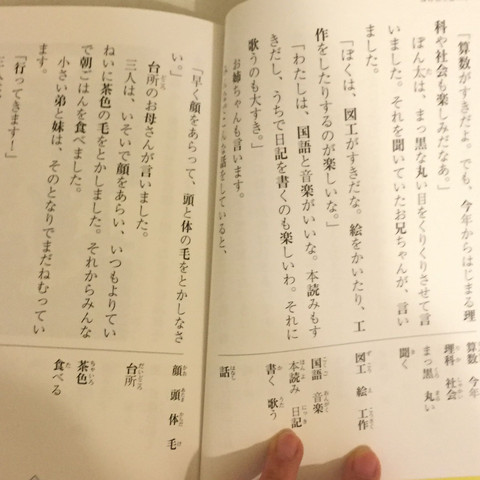 「算数がすきだよ。でも、今年からはじまる理
科や社会も楽しみだなあ。」
ぽん太は、まっ黒な丸い目をくりくりさせて言
いました。それを聞いていたお兄ちゃんが、言い
ました。
「ぼくは、図工がすきだな。絵をかいたり、工
作をしたりするのが楽しいな。」
「わたしは、国語と音楽がいいな。本読みもす
きだし、うちで日記を書くのも楽しいわ。それに
歌うのも大すき。」
お姉ちゃんも言います。
話をしていると、
算数 今年
理科 社会
まっ黒 丸い
聞く
図工 絵 工作
国語 音楽
本読み 日記
書く 歌う
話
「早く顔をあらって、頭と体の毛をとかしなさ
い。」
台所のお母さんが言いました。
三人は、いそいで顔をあらい、いつもよりてい
ねいに茶色の毛をとかしました。それからみんな
で朝ごはんを食べました。
小さい弟と妹は、そのとなりでまだねむってい
ます。
「行ってきます！」
顔 頭 体 毛
台所
茶色
食べる